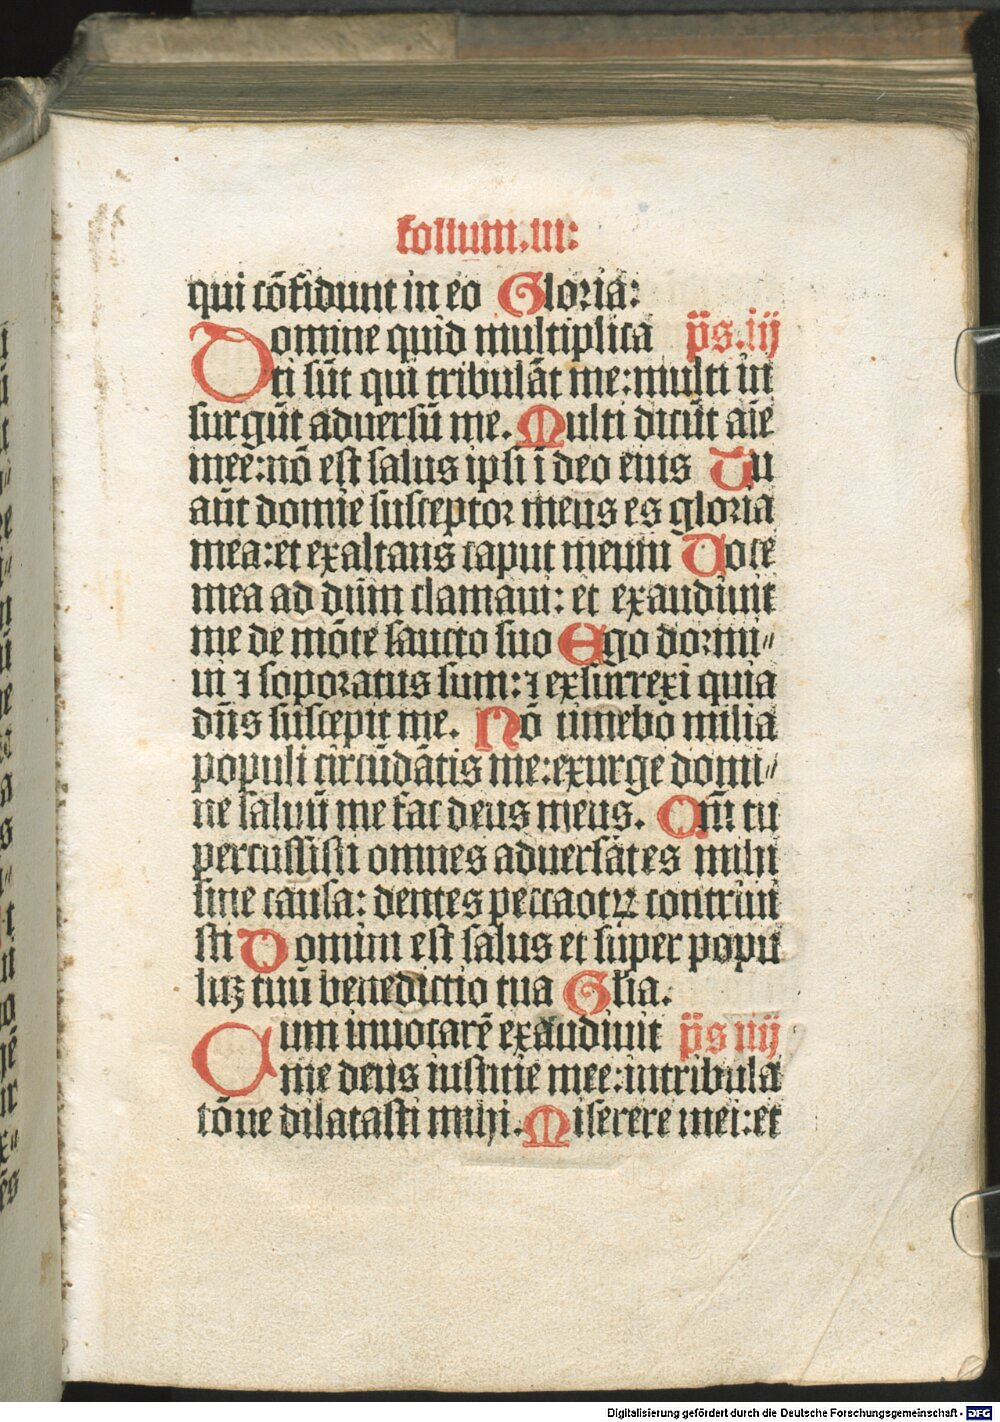 folium.iii:
qui cōfidunt in eo Gloria:
Domine quid multiplica p̄s.iij
ti sūt qui tribulāt me:multi in
surgūt aduersū me. Multi dicūt aīe
mee:nō est salus ipsi ī deo eius Tu
aūt domīe susceptor meus es gloria
mea:et exaltans caput meum Uoce
mea ad dūm clamaui: et exaudiuit
me de mōte sancto suo Ego dormi⸗
ui ⁊ soporatus sum:⁊ exsurrexi quia
dn̄s suscepit me. Nō timebo milia
populi circūdātis me:exurge domi⸗
ne saluū me fac deus meus. Qm̄ tu
percussisti omnes aduersātes mihi
sine causa: dentes peccaotꝝ contriui
sti Domini est salus et super popu
luꝫ tuū benedictio tua Glīa.
Cum inuocarē exaudiuit p̄s iiij
me deus iustitie mee:intribula
tōne dilatasti mihi. Miserere mei:et
Digitalisierung gefördert durch die Deutsche Forschungsgemeinschaft - DFG